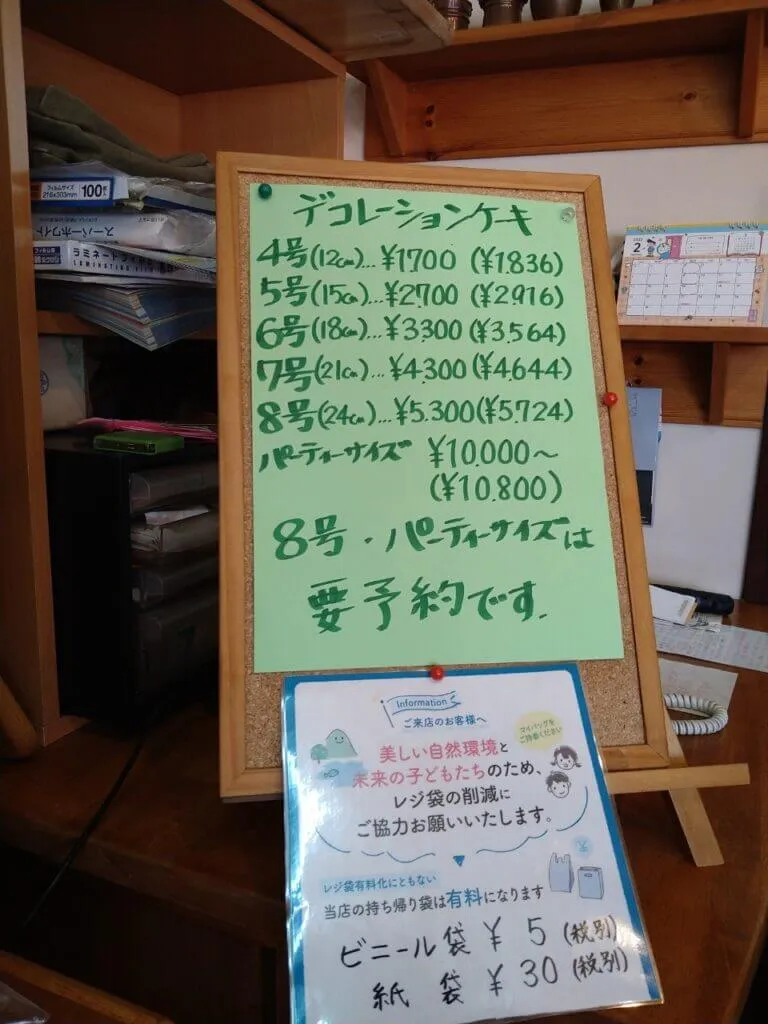 フィルムサイズ
216×303mm
100枚入
スーパーホワイト
ラミネート
2
デコレーションケーキ
4号(12cm)...¥1700 (¥1.836)
5号(15cm)...¥2.700 (¥2.916)
6号(18cm)...¥3300 (¥3.564)
7号(21cm)...¥4.300 (¥4.644)
8号(24cm)...¥5.300(¥5.724)
パーティーサイズ ¥10.000~
(¥10.800)
8号・パーティーサイズは
要予約です.
Information
ご来店のお客様へ
マイバッグを
ご持参ください
美しい自然環境と
未来の子どもたちのため、
レジ袋の削減に
ご協力お願いいたします。
レジ袋有料化にともない
当店の持ち帰り袋は有料になります
ビニール袋 ¥ 5 (税別)
紙 袋 ¥ 30 (税別)